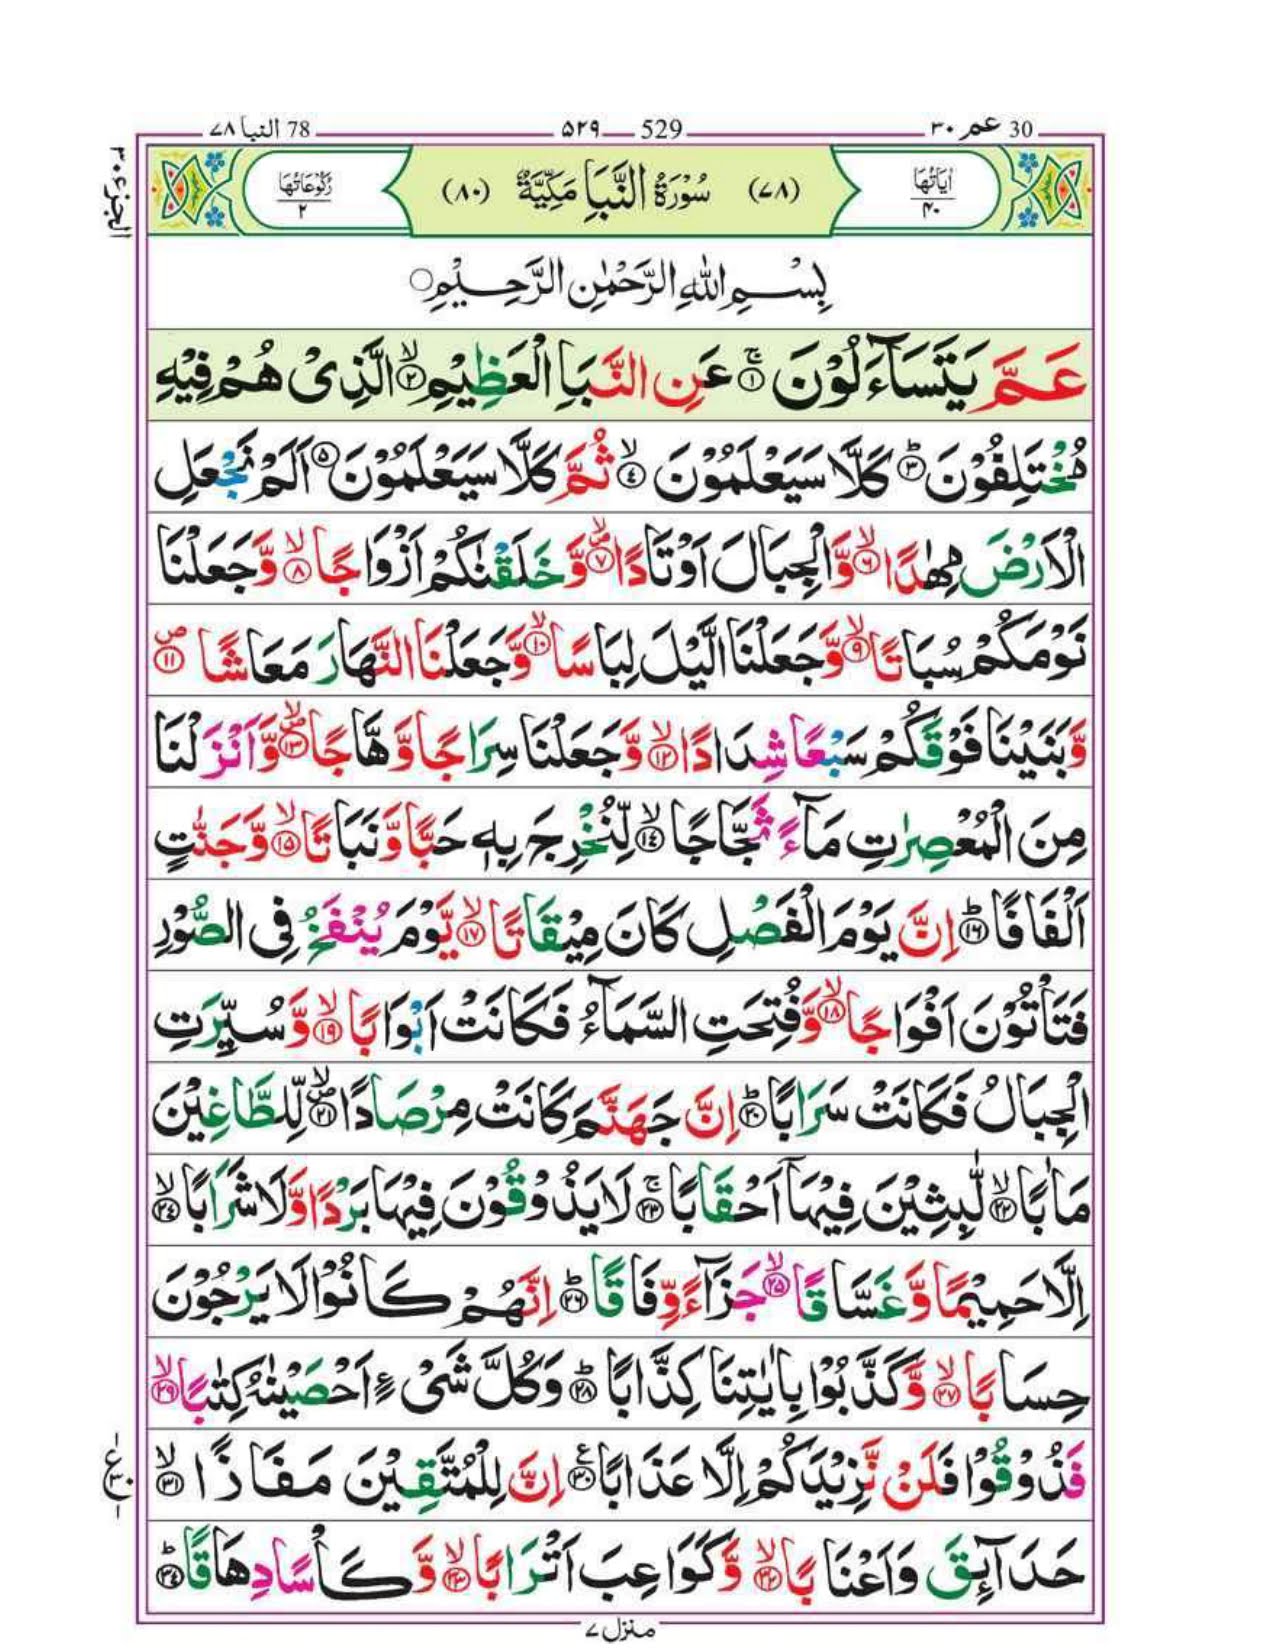 30 عم ۳۰
529 ۵۲۹
78 النبا ۷۸
الجزء ۳۰
اٰيَاتُهَا ۴۰
(۷۸) سُوْرَةُ النَّبَاِ مَكِّيَّةٌ (۸۰)
رُكُوْعَاتُهَا ۲
بِسْمِ اللّٰهِ الرَّحْمٰنِ الرَّحِيْمِ ○
عَمَّ يَتَسَآءَلُوْنَ ۚ ﴿۱﴾ عَنِ النَّبَاِ الْعَظِيْمِ ۙ ﴿۲﴾ الَّذِيْ هُمْ فِيْهِ
مُخْتَلِفُوْنَ ؕ ﴿۳﴾ كَلَّا سَيَعْلَمُوْنَ ۙ ﴿۴﴾ ثُمَّ كَلَّا سَيَعْلَمُوْنَ ﴿۵﴾ اَلَمْ نَجْعَلِ
الْاَرْضَ مِهٰدًا ۙ ﴿۶﴾ وَّالْجِبَالَ اَوْتَادًا ۪ۙ ﴿۷﴾ وَّخَلَقْنٰكُمْ اَزْوَاجًا ۙ ﴿۸﴾ وَّجَعَلْنَا
نَوْمَكُمْ سُبَاتًا ۙ ﴿۹﴾ وَّجَعَلْنَا الَّيْلَ لِبَاسًا ۙ ﴿۱۰﴾ وَّجَعَلْنَا النَّهَارَ مَعَاشًا ۪ ﴿۱۱﴾
وَّبَنَيْنَا فَوْقَكُمْ سَبْعًا شِدَادًا ۙ ﴿۱۲﴾ وَّجَعَلْنَا سِرَاجًا وَّهَّاجًا ۪ۙ ﴿۱۳﴾ وَّاَنْزَلْنَا
مِنَ الْمُعْصِرٰتِ مَآءً ثَجَّاجًا ۙ ﴿۱۴﴾ لِّنُخْرِجَ بِهٖ حَبًّا وَّنَبَاتًا ۙ ﴿۱۵﴾ وَّجَنّٰتٍ
اَلْفَافًا ؕ ﴿۱۶﴾ اِنَّ يَوْمَ الْفَصْلِ كَانَ مِيْقَاتًا ۙ ﴿۱۷﴾ يَّوْمَ يُنْفَخُ فِي الصُّوْرِ
فَتَاْتُوْنَ اَفْوَاجًا ۙ ﴿۱۸﴾ وَّفُتِحَتِ السَّمَآءُ فَكَانَتْ اَبْوَابًا ۙ ﴿۱۹﴾ وَّسُيِّرَتِ
الْجِبَالُ فَكَانَتْ سَرَابًا ؕ ﴿۲۰﴾ اِنَّ جَهَنَّمَ كَانَتْ مِرْصَادًا ۪ۙ ﴿۲۱﴾ لِّلطَّاغِيْنَ
مَاٰبًا ۙ ﴿۲۲﴾ لّٰبِثِيْنَ فِيْهَآ اَحْقَابًا ۚ ﴿۲۳﴾ لَا يَذُوْقُوْنَ فِيْهَا بَرْدًا وَّلَا شَرَابًا ۙ ﴿۲۴﴾
اِلَّا حَمِيْمًا وَّغَسَّاقًا ۙ ﴿۲۵﴾ جَزَآءً وِّفَاقًا ؕ ﴿۲۶﴾ اِنَّهُمْ كَانُوْا لَا يَرْجُوْنَ
حِسَابًا ۙ ﴿۲۷﴾ وَّكَذَّبُوْا بِاٰيٰتِنَا كِذَّابًا ؕ ﴿۲۸﴾ وَكُلَّ شَيْءٍ اَحْصَيْنٰهُ كِتٰبًا ۙ ﴿۲۹﴾
فَذُوْقُوْا فَلَنْ نَّزِيْدَكُمْ اِلَّا عَذَابًا ﴿۳۰﴾ اِنَّ لِلْمُتَّقِيْنَ مَفَازًا ۙ ﴿۳۱﴾
حَدَآئِقَ وَاَعْنَابًا ۙ ﴿۳۲﴾ وَّكَوَاعِبَ اَتْرَابًا ۙ ﴿۳۳﴾ وَّكَاْسًا دِهَاقًا ؕ ﴿۳۴﴾
منزل ۷